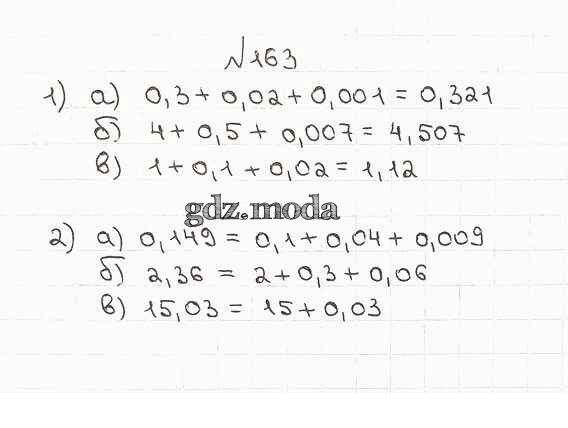 №163
1) а) 0,3 + 0,02 + 0,001 = 0,321
б) 4 + 0,5 + 0,007 = 4,507
в) 1 + 0,1 + 0,02 = 1,12
gdz.moda
2) а) 0,149 = 0,1 + 0,04 + 0,009
б) 2,36 = 2 + 0,3 + 0,06
в) 15,03 = 15 + 0,03